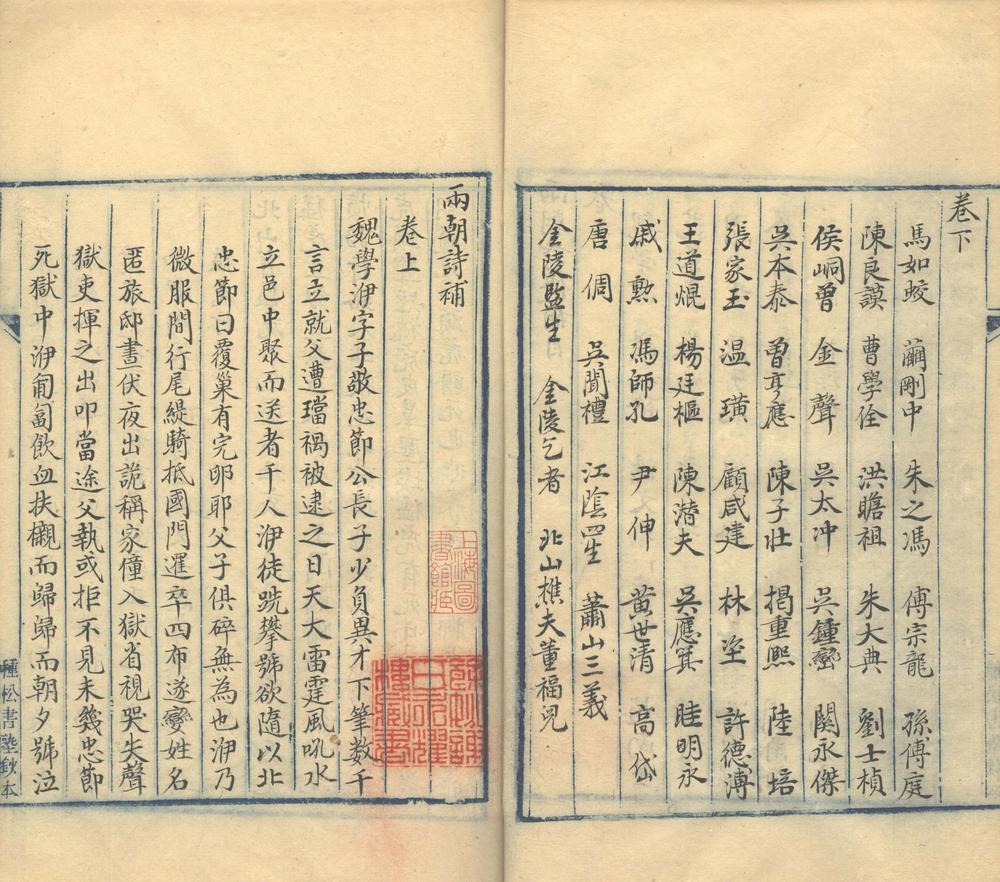 卷下
馬如蛟 繭剛中 朱之馮 傅宗龍 孫傅庭
陳良謨 曹學佺 洪瞻祖 朱大典 劉士楨
侯峒曾 金聲 吳太冲 吳鍾巒 閔永傑
吳本泰 曾亨應 陳子壯 揭重熙 陸培
張家玉 温璜 顧咸建 林垐 許德溥
王道焜 楊廷樞 陳潜夫 吳應箕 眭明永
戚勲 馮師孔 尹伸 黃世清 高岱
唐倜 吳聞禮 江陰四生 蕭山三義
金陵監生 金陵乞者 北山樵夫董福兒
兩朝詩補
卷上
魏學洢字子敬忠節公長子少負異才下筆数千
言立就父遭璫禍被逮之日天大雷霆風吼水
立邑中聚而送者千人洢徒跣攀號欲隨以北
忠節曰覆巢有完卵耶父子俱碎無為也洢乃
微服間行尾緹騎抵國門邏卒四布遂變姓名
匿旅邸晝伏夜出詭稱家僮入獄省視哭失聲
獄吏揮之出叩當途父執或拒不見未幾忠節
死獄中洢匍匐飲血扶櫬而歸歸而朝夕號泣
種松書塾鈔本
上海圖書館藏